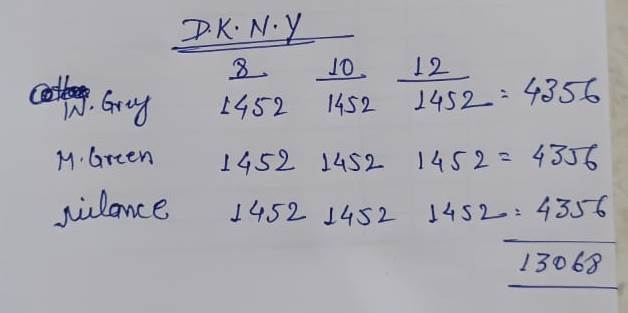 D.K.N.Y
8 10 12
W. Grey 1452 1452 1452 = 4356
M. Green 1452 1452 1452 = 4356
1452 1452 1452 = 4356
13068